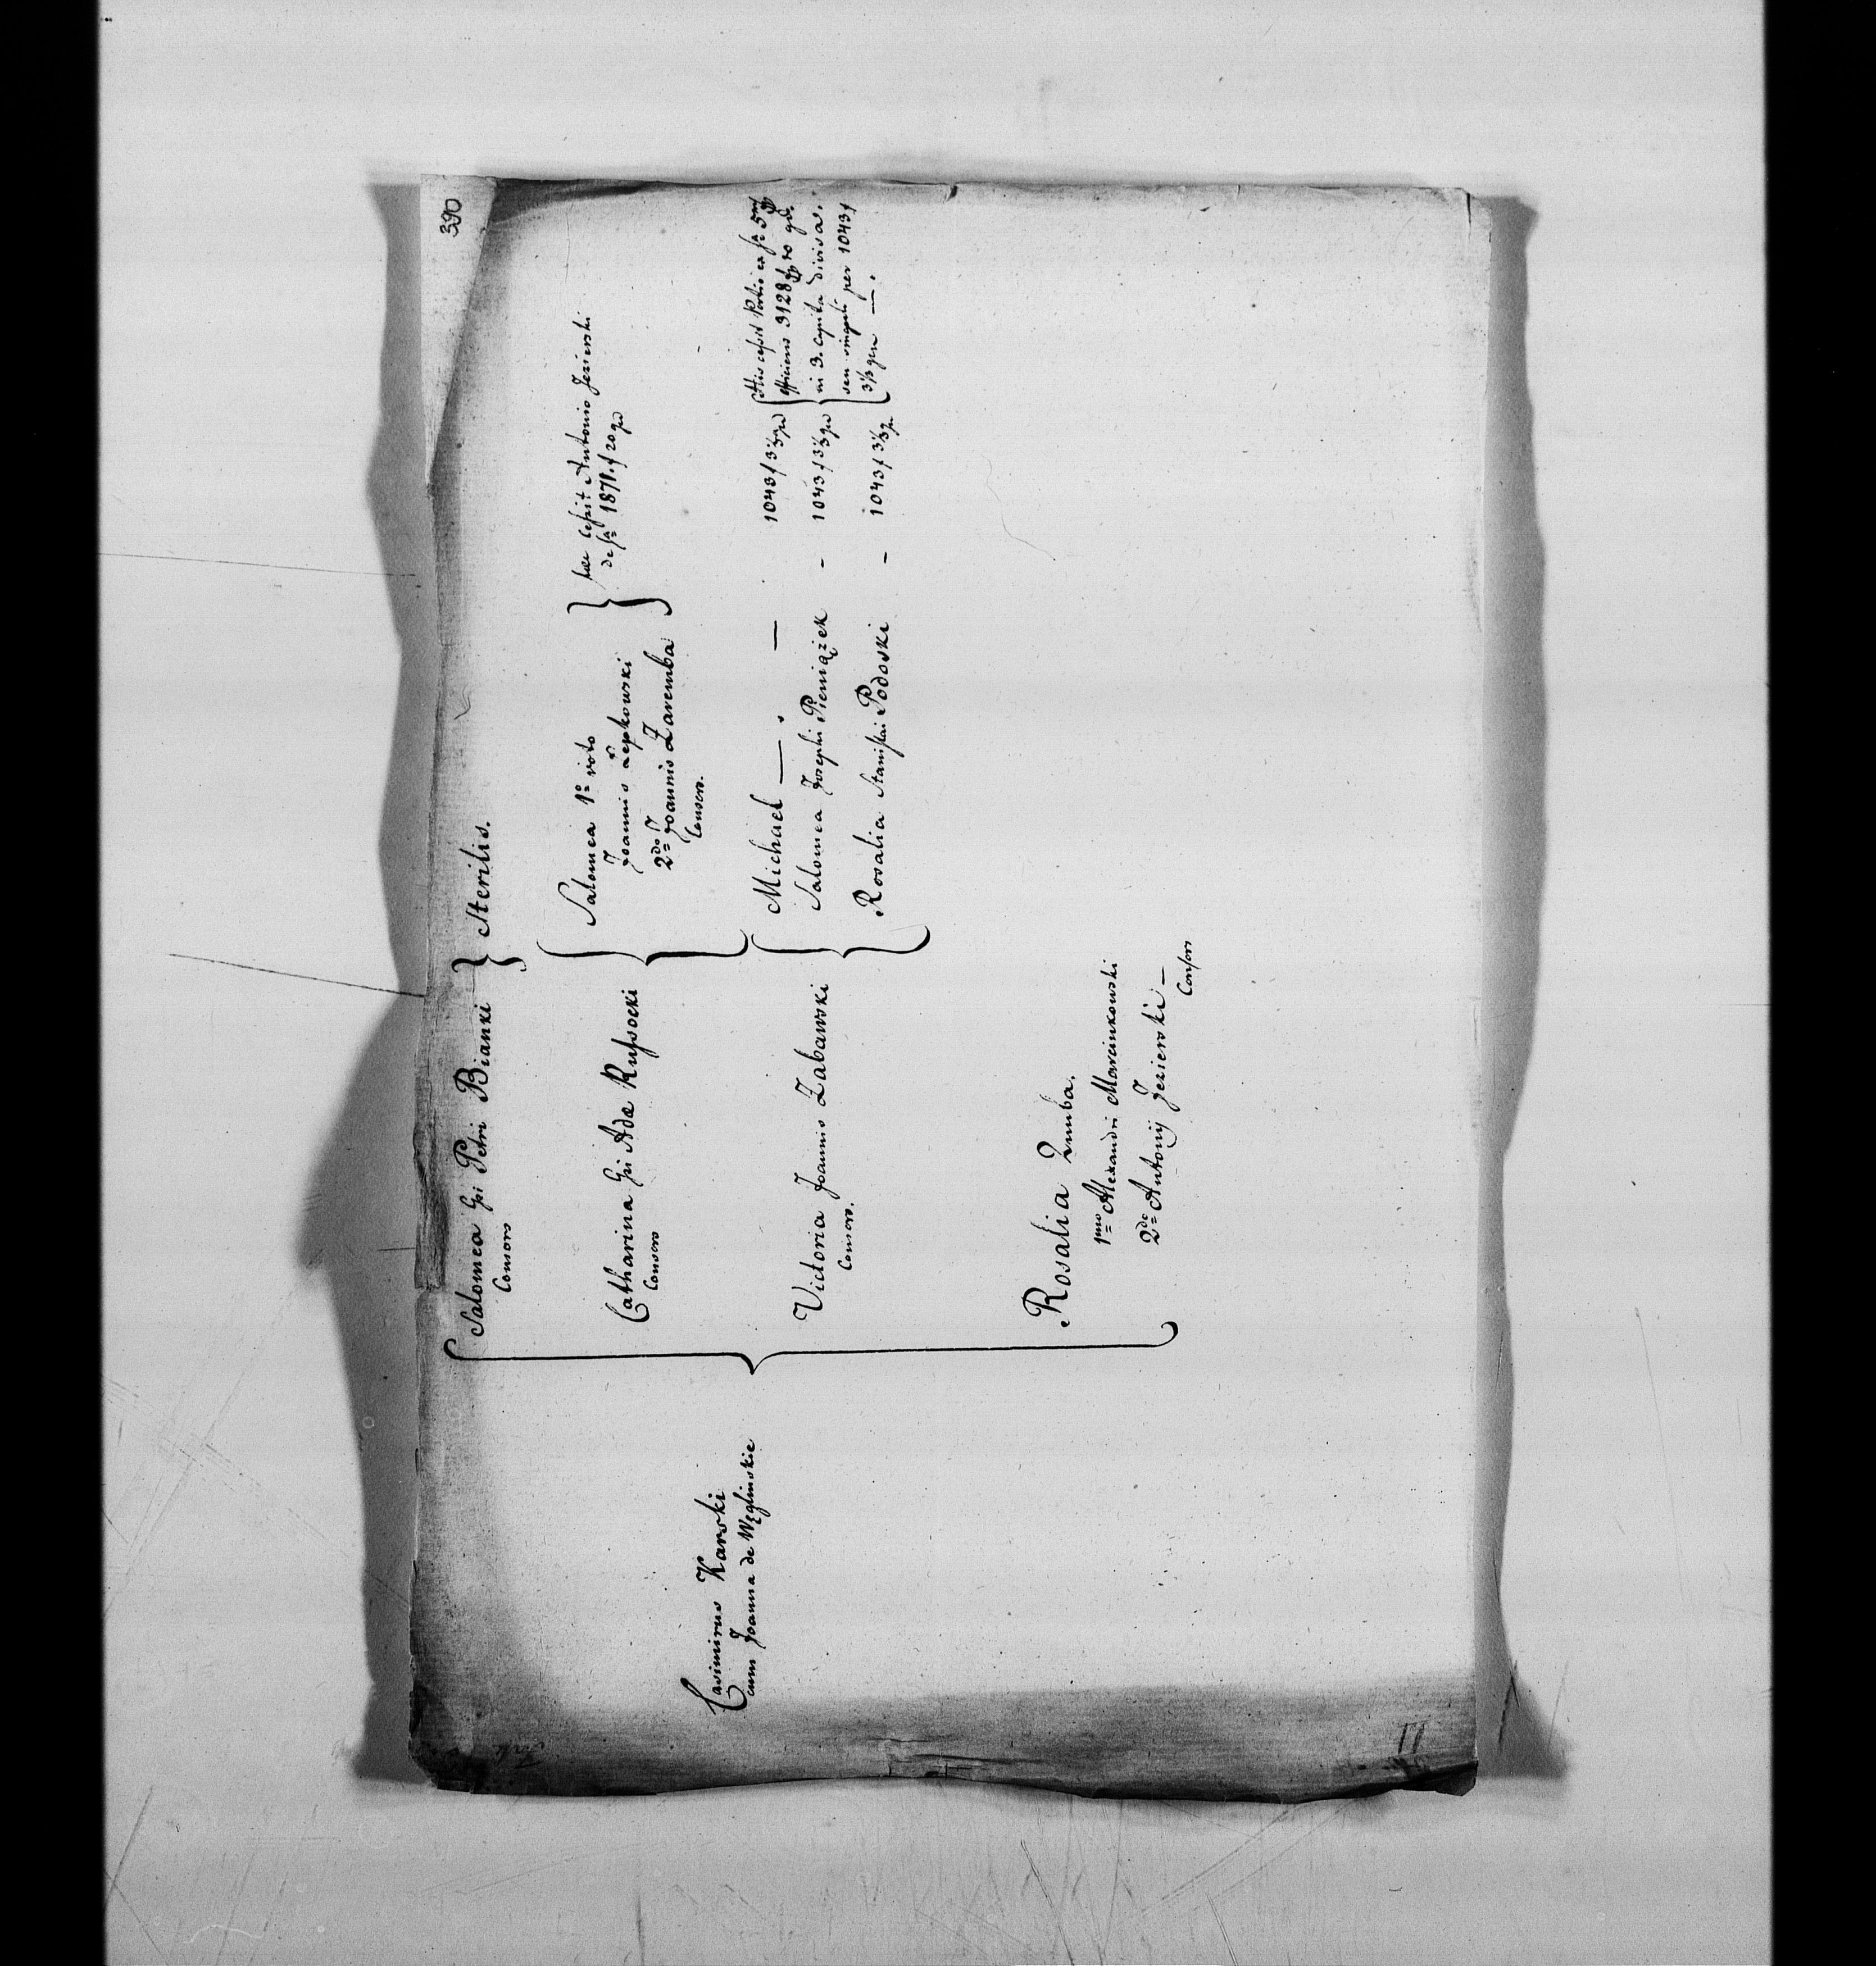 390
Casimirus Karski
cum Joanna de Węglinskie
Salomea Gsi Petri Bianki
Consors
Sterilis.
Catharina Gsi Adæ Russocki
Consors
Salomea 1º voto
Joannis Łępkowski
2do Joannis Zaremba
Consors.
hæc cessit Antonio Jezierski
de sua 1871 f 20 gr
Victoria Joannis Zabawski
Consors.
Michael — . — 1043 f 3⅓ gr
Salomea Josephi Pieniążek - 1043 f 3⅓ gr
Rosalia Stanislai Podoski - 1043 f 3⅓ gr
His cessit Portio ex
efficiens 3128 f 10 gr.
in 3. capita divisa.
seu singuli per 1043 f
3⅓ gr — .
Rosalia
1mo Alexandri Marcinkowski
2do Antonij Jezierski —
Consors